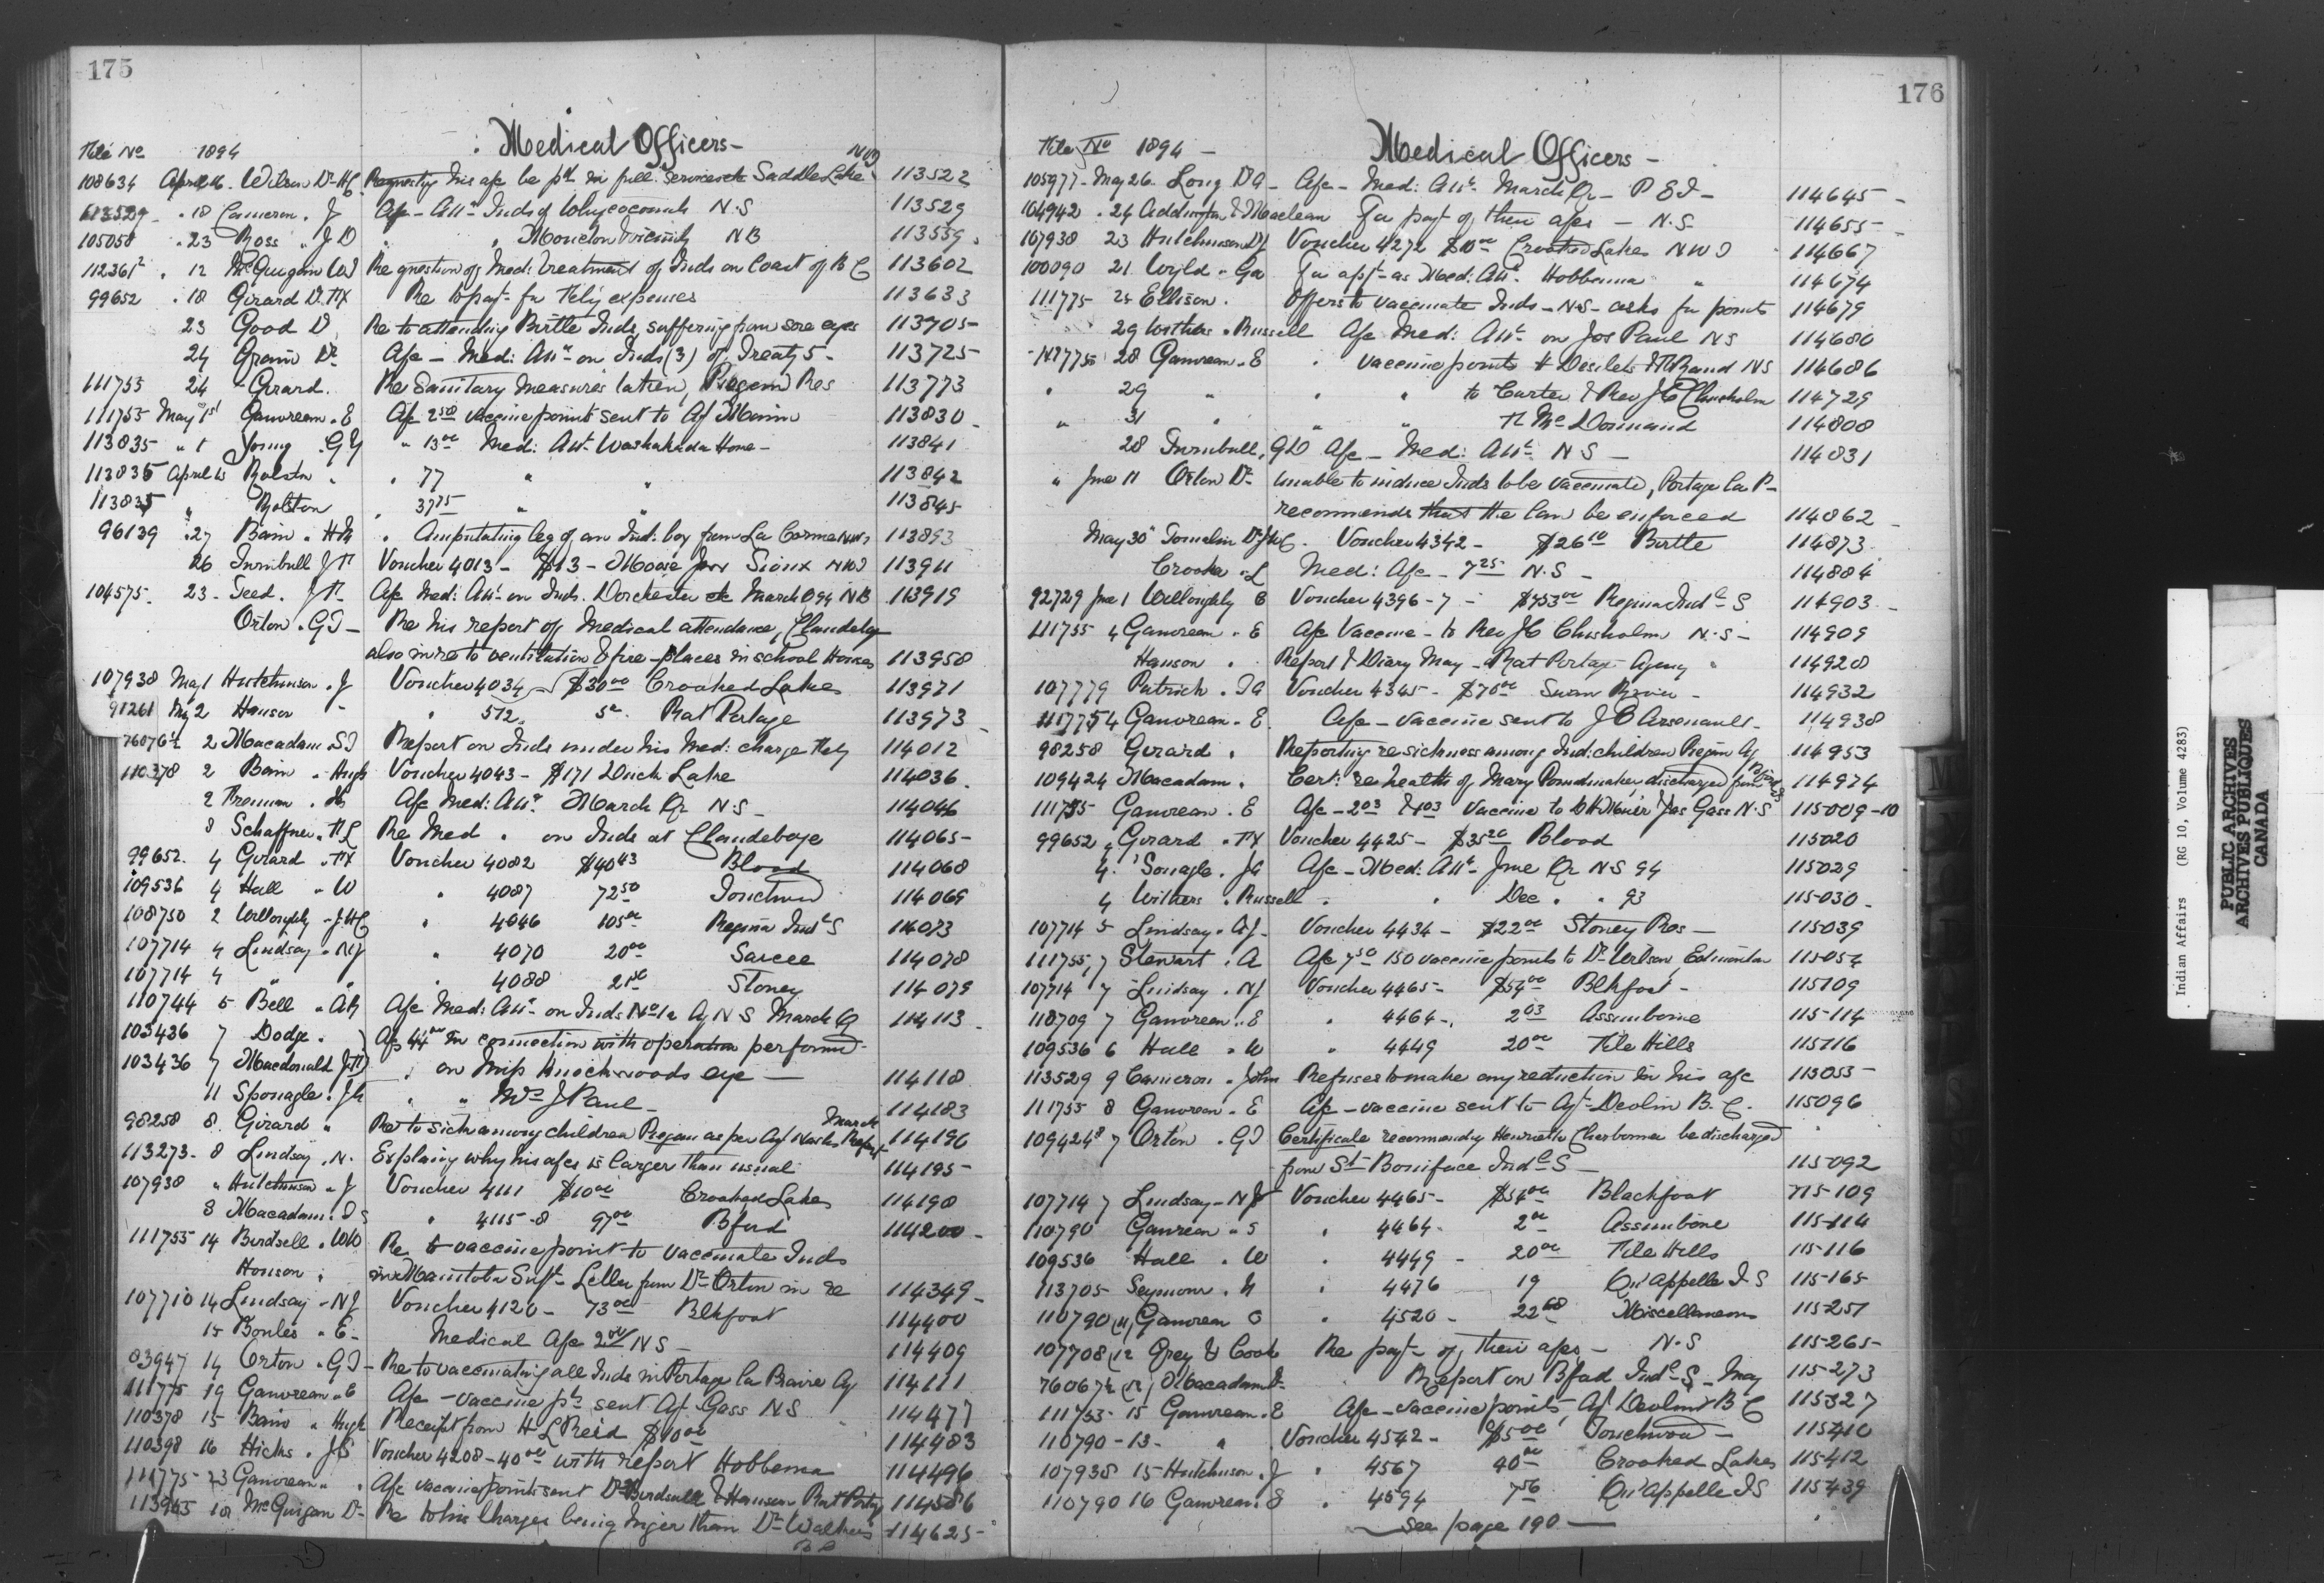 175
Medical Officers -
File No 1894
108634 April 16. Wilson Dr H C. Requesting his a/c be pd in full services Saddle Lake NWT 113522
113529 " 18 Cameron . J A/c - Attce Inds of Whycocomah N.S 113529
105058 " 23 Ross " J D " " Moncton Vicinity NB 113559
112361 " 12 McGuigan W J Re question of Med: Treatment of Inds on Coast of B C 113602
99652 " 18 Girard D. FX Re to payt for expenses 113633
23 Good D Re to attending Birtle Inds, suffering from sore eyes 113705
24 Grain Dr A/c - Med: Attce on Inds (3) of Treaty 5 - 113725
111755 24 Girard. Re Sanitary measures taken, Piegan Res 113773
111755 May 1st Gauvreau . E A/c 2.50 vaccine points sent to Agt 113830
113835 " 1 G Y " 13.00 Med: Attce Washakada Home - 113841
113835 April 15 Rolston " " 77 " " 113842
113835 " Rolston " 37.75 " " 113845
96139 " 27 Bain . H M " Amputating leg of an Ind: boy from La Corne NWT 113893
26 Turnbull J T Voucher 4013 - $13 - Moose Jaw Sioux NWT 113911
104575 - 23 - Teed . J T A/c Med: Attce on Inds. Dorchester March Q 94 NB 113919
Orton . G T - Re his report of Medical attendance, Clandeboye
also in re to ventilation & fire-places in school Houses 113958
107938 May 1 Hutchinson . J Voucher 4034 - $30.00 Crooked Lakes 113971
91261 May 2 Hanson - " 572 Rat Portage 113973
76076½ 2 Macadam . S T Report on Inds under his Med: charge 114012
110378 2 Bain . Hugh Voucher 4043 - $171 Duck Lake 114036
2 A/c Med: Attce March Qr N S - 114046
8 Schaffner . F L Re Med " on Inds at Clandeboye 114065
99652 . 4 Girard . FX Voucher 4082 $40.43 Blood 114068
109536 4 Hall " W " 4087 72.50 Touchwood 114069
108750 2 Willoughby - J.H.C " 4046 105.00 Regina Indl S 114073
107714 4 Lindsay . N J " 4070 20.00 Sarcee 114078
107714 4 " " " 4088 Stoney 114079
110744 5 Bell " A M A/c Med: Attce on Inds No 1a Ag N S March Q 114113
103436 7 Dodge . A/c 44.00 in connection with operation performed
103436 7 Macdonald J F " on Miss Knockwoods eye - 114118
11 Sponagle . J L " " Mrs J Paul - 114183
98258 8 Girard " Re to sick among children Piegan as per Agt Nash's March Report 114196
113273 - 8 Lindsay . N . Explaining why his a/cs is larger than usual 114195
107938 " Hutchinson . J Voucher 4111 $10.00 Crooked Lakes 114198
8 Macadam . S T " 4115-8 97.00 Bford 114200 -
111755 14 Birdsell . W W Re to vaccine point to vaccinate Inds
Hanson " in Manitoba Supt - Letter from Dr Orton in re 114349 -
107710 14 Lindsay - N J Voucher 4120 - 73.00 Blkfoot 114400
15 Bowles " E - Medical A/c 2.00 N S - 114409
83947 14 Orton . G T - Re to vaccinating all Inds in Portage la Prairie Ag 114111
111775 19 Gauvreau . E A/c - vaccine pts sent Agt Gass N S 114477
110378 15 Bain " Hugh Receipt from H L Reid $10.00 114483
110398 16 Hicks . J S Voucher 4208 - 40.00 with report Hobbema 114496
111775 23 Gauvreau " " A/c vaccine points sent Dr Birdsell & Hanson Rat Portage 114586
113965 18 McGuigan Dr - Re to his charges being larger than Dr Walker's B C 114625
176
Medical Officers -
File No 1894 -
105977 - May 26 - Long D A - A/c - Med: Attce March Qr - P E I - 114645 -
104942 . 24 Addington & Maclean For payt of their a/cs - N.S - 114655 -
107938 23 Hutchinson Dr J Voucher 4272 $10.00 Crooked Lakes NWT 114667
100090 21 Wyld . Geo For appt as Med: Attt Hobbema " 114674
111775 25 Ellison . Offers to vaccinate Inds - N.S - asks for points 114679
29 Withers . Russell A/c Med: Attce on Jos Paul NS 114680
111775 28 Gauvreau . E " vaccine points to Desilets & F Rand NS 114686
" 29 " " " to Carter & Rev J C Chisholm 114729
" 31 " " " F McDormand 114808
28 Turnbull, G D A/c - Med: Attce N S - 114831
" June 11 Orton Dr Unable to induce Inds to be vaccinated, Portage La P -
recommends that the law be enforced 114862
May 30 Tomalin Dr J H C . Voucher 4342 - $26.10 Birtle 114873
Crooker . L Med: A/c - 7.25 N.S - 114884
92729 June 1 Willoughby C Voucher 4396-7 - $753.00 Regina Indl S 114903 -
111755 4 Gauvreau . E A/c Vaccine - to Rev J C Chisholm N.S - 114909
Hanson " Report & Diary May - Rat Portage Agency " 114928
107779 Patrick . T A Voucher 4345 - $70.00 Swan River - 114932
111775 4 Gauvreau . E A/c - vaccine sent to J O Arsenault - 114938
98258 Girard " Reporting re sickness among Ind: children Piegan Ag 114953
109424 Macadam . Cert: re health of Mary Poundmaker discharged from Bford I S 114974
111755 Gauvreau . E A/c - 2.03 & 4.03 Vaccine to & Jas Gass N.S 115009-10
99652 4 Girard . FX Voucher 4425 - $35.20 Blood 115020
4 Sponagle . J L A/c - Med: Attce June Qr NS 94 115029
4 Withers . Russell " " Dec " " 93 115030 -
107714 5 Lindsay . N J - Voucher 4434 - $22.00 Stoney Res - 115039
111755 7 Stewart . A A/c 7.50 150 vaccine points to Dr Wilson, Edmonton 115054
107714 7 Lindsay . N J Voucher 4465 - $54.00 Blkfoot - 115109
110709 7 Gauvreau . E " 4464 - 2.03 Assiniboine 115114
109536 6 Hall " W " 4449 20.00 File Hills 115116
113529 9 Cameron . John Refuses to make any reduction in his a/c 115055
111755 8 Gauvreau . E A/c - vaccine sent to Agt Devlin B.C. 115096
109424⁸ 7 Orton . G T Certificate recommending Henriette Charbonneau be discharged
from St Boniface Indl S - 115092
107714 7 Lindsay - N J Voucher 4465 - $54.00 Blackfoot 115109
110790 Gauvreau " " 4464 - 2.00 Assiniboine 115114
109536 Hall . W " 4449 - 20.00 File Hills 115116
113705 Seymour . M " 4476 19 Qu'Appelle I S 115165
110790 (11) Gauvreau E " 4520 - 22.68 Miscellaneous 115251
107708 (12 Grey & Cook Re payt of their a/cs - N.S 115265
76067½ (12) Macadam Dr - Report on Bford Indl S - May 115273
111755 - 15 Gauvreau . E A/c - vaccine points Agt Devlin B C 115327
110790 - 13 - " Voucher 4542 - $5.00 Touchwood - 115410
107938 15 Hutchinson . J " 4567 40.00 Crooked Lakes 115412
110790 16 Gauvreau . E " 4594 7.56 Qu'Appelle IS 115439
- See page 190 -
Indian Affairs (RG 10, Volume 4283)
PUBLIC ARCHIVES
ARCHIVES PUBLIQUES
CANADA